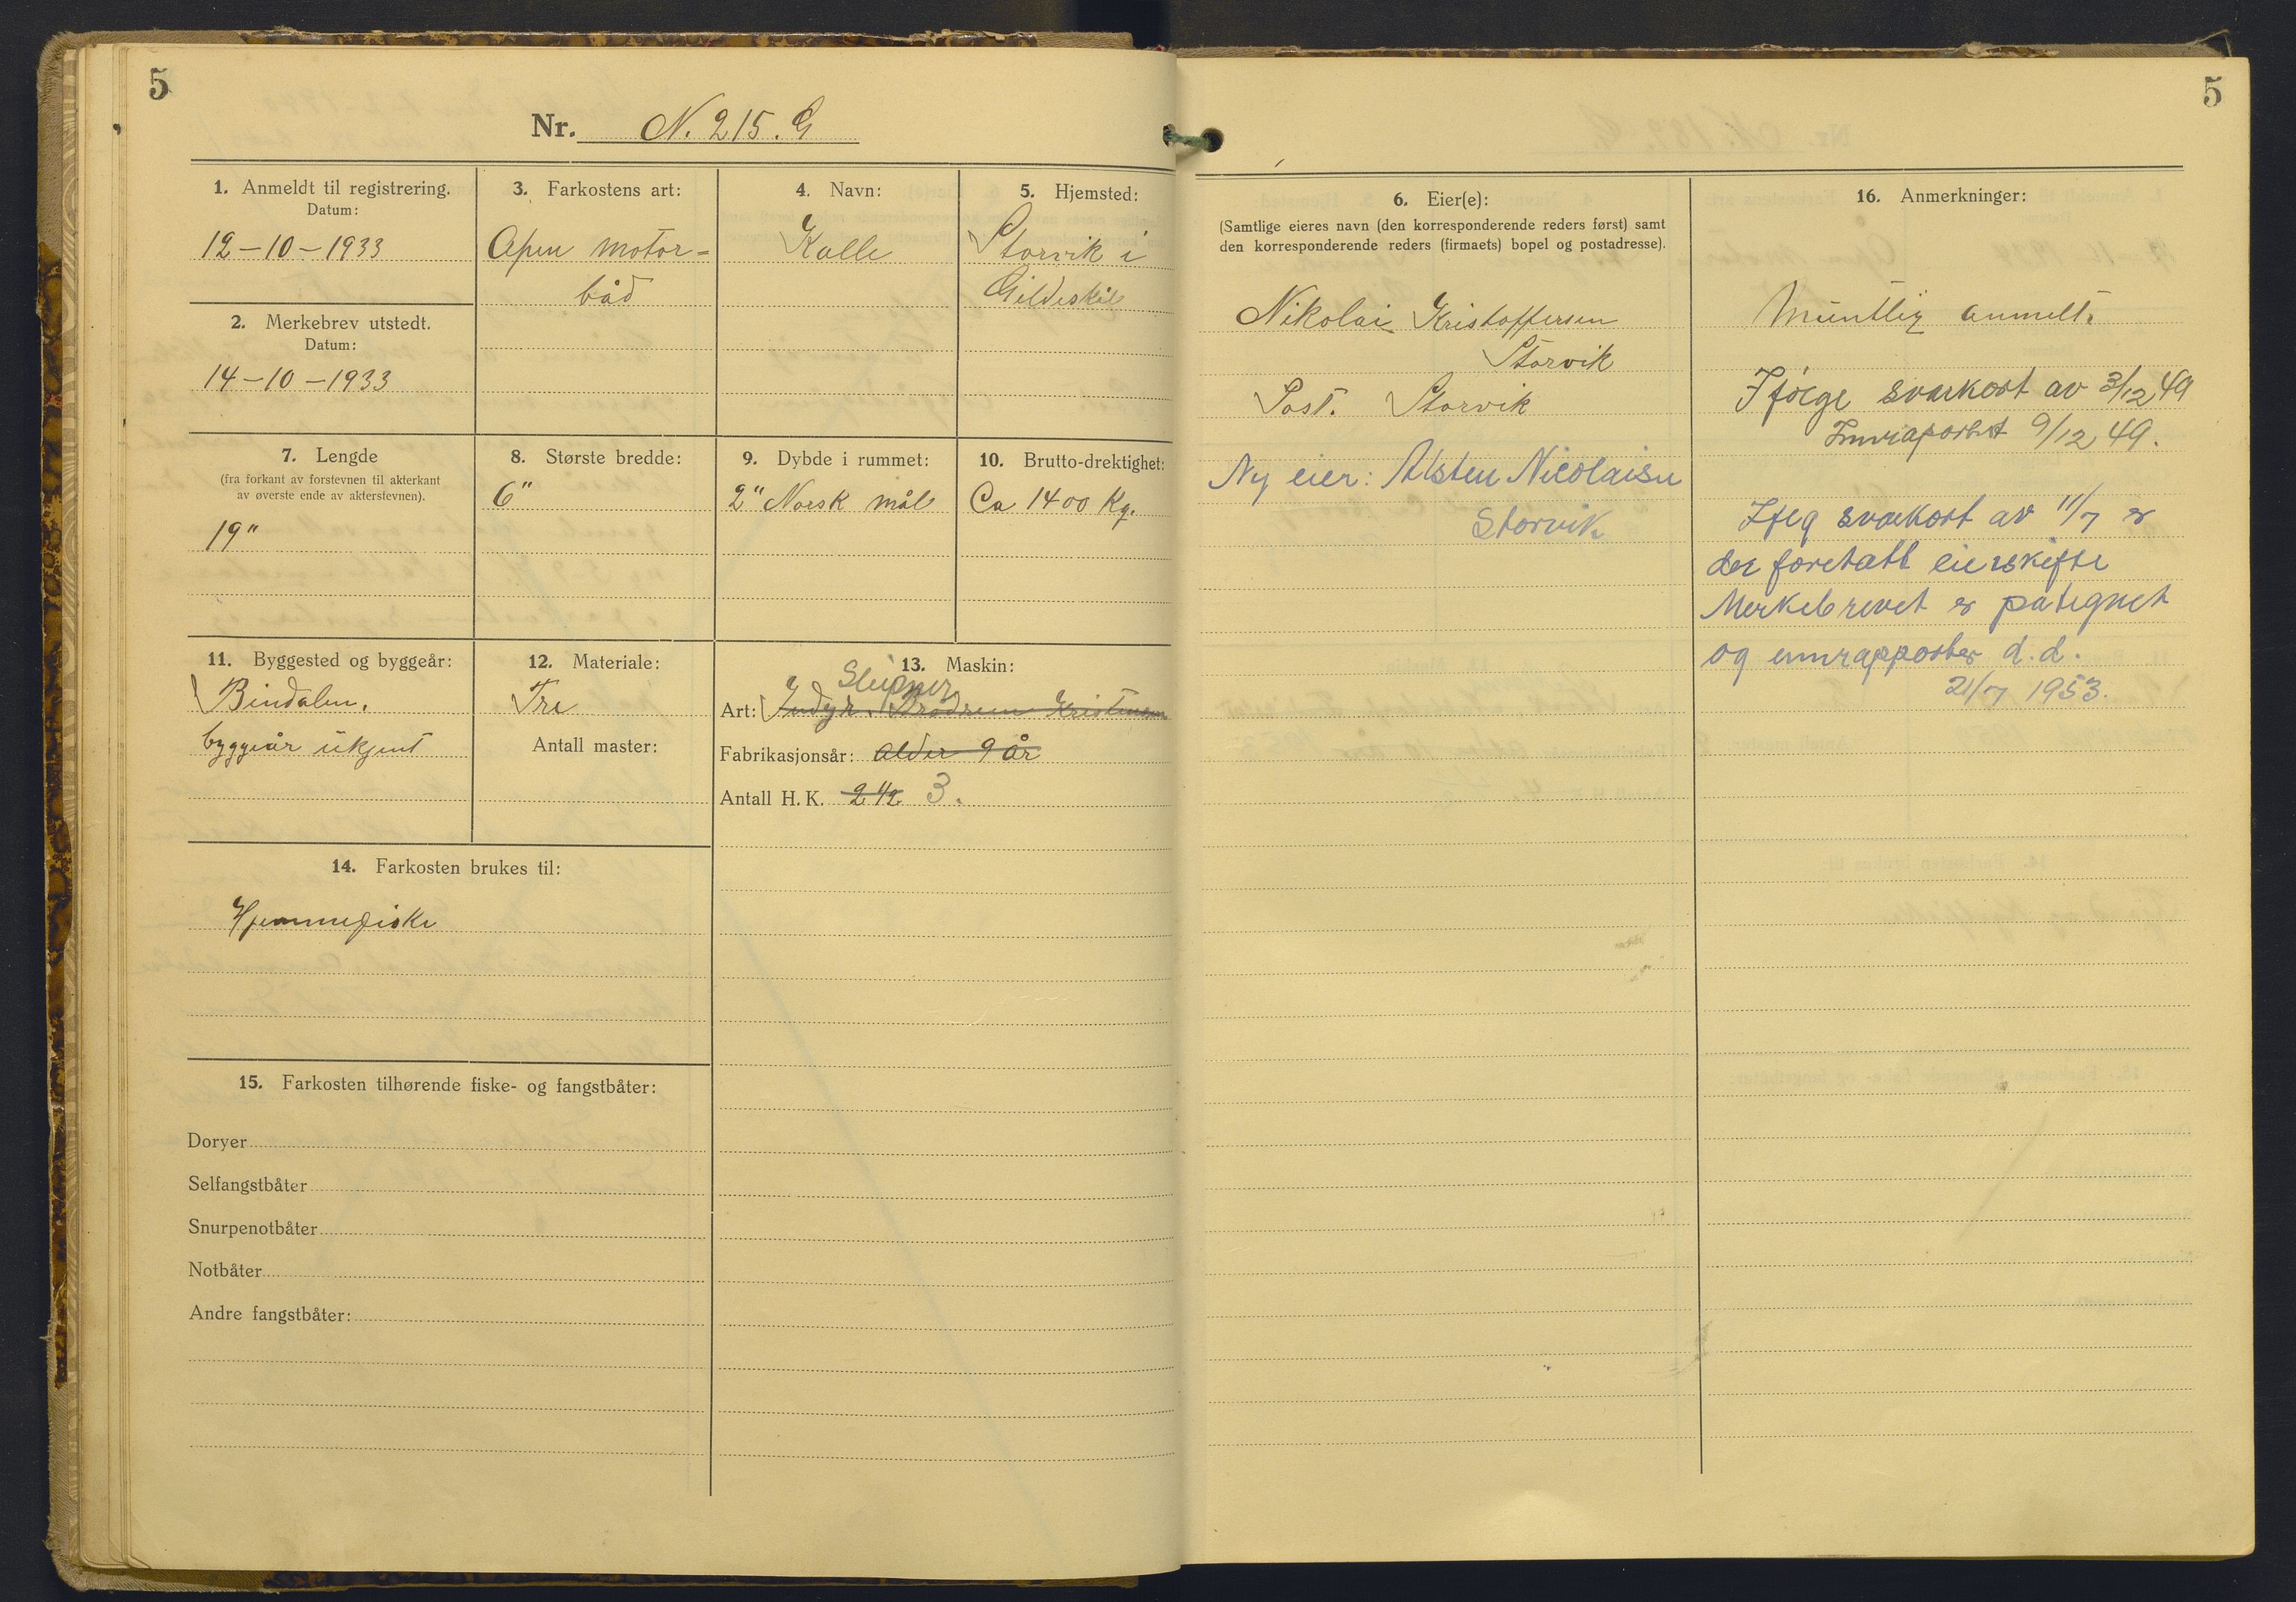 5
Nr. N. 215. G
1. Anmeldt til registrering.
Datum:
12-10-1933
2. Merkebrev utstedt.
Datum:
14-10-1933
3. Farkostens art:
Apen motor=
båd
4. Navn:
Kalle
5. Hjemsted:
Storvik i
Gildeskål
7. Lengde
(fra forkant av forstevnen til akterkant
av øverste ende av akterstevnen).
19"
8. Største bredde:
6"
9. Dybde i rummet:
2" Norsk mål
10. Brutto-drektighet:
Ca 1400 Kg.
11. Byggested og byggeår:
Bindalen.
byggeår ukjent
12. Materiale:
Tre
Antall master:
13. Maskin:
Sleipner
Art: Indyr. Brødrene Kristensen
Fabrikasjonsår: alder 9 år
Antall H. K. 2 1/2 3.
14. Farkosten brukes til:
Hjemmefiske
15. Farkosten tilhørende fiske- og fangstbåter:
Doryer
Selfangstbåter
Snurpenotbåter
Notbåter
Andre fangstbåter:
5
6. Eier(e):
(Samtlige eieres navn (den korresponderende reders først) samt
den korresponderende reders (firmaets) bopel og postadresse).
Nikolai Kristoffersen
Storvik
Post. Storvik
Ny eier: Alsten Nicolaisen
Storvik
16. Anmerkninger:
Muntlig anmelt.
Ifølge svarkort av 3/12 49
Innraportert 9/12 49.
Ifлg svarkort av 11/7 er
der foretatt eierskifte
Merkebrevet er påtegnet
og innrapporter d.d.
21/7 1953.